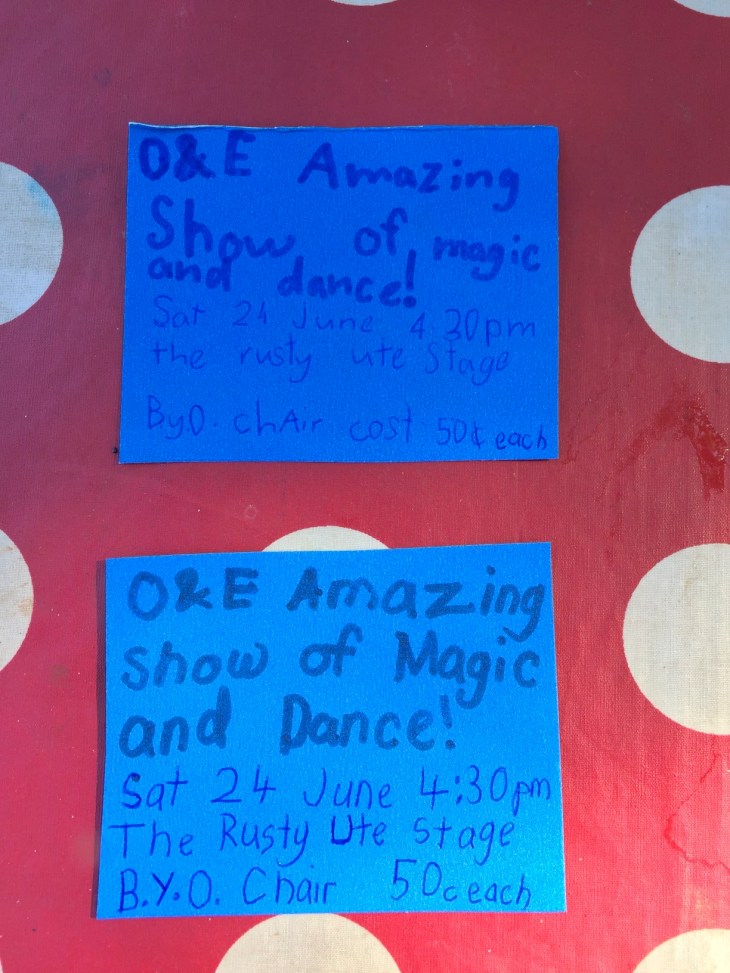 O&E Amazing
Show of magic
and dance!
Sat 24 June 4:30pm
the rusty ute Stage
By.O. chAir cost 50¢ each
O&E Amazing
show of Magic
and Dance!
Sat 24 June 4:30pm
The Rusty Ute stage
B.Y.O. Chair 50c each